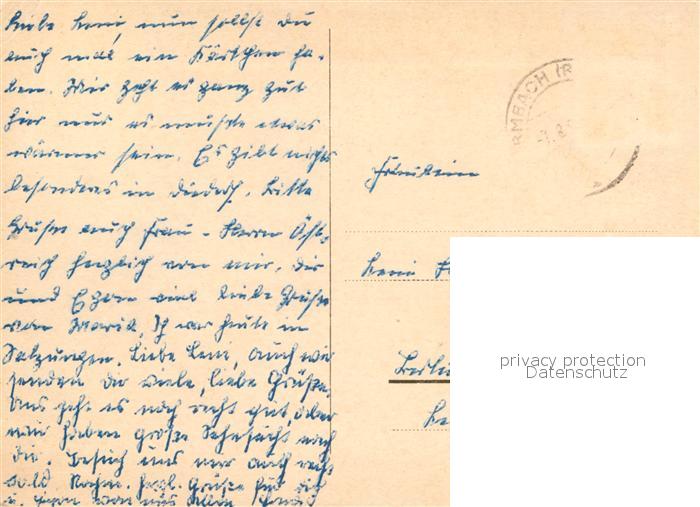 Liebe Leni, nun sollst du
auch mal ein Kärtchen ha-
ben. Mir geht es ganz gut
hier nur es müsste etwas
wärmer sein. Es gibt nichts
besonderes in Bitte
Grüße auch Frau u. Herrn
reich herzlich von mir. Dir
und Egon viel liebe Grüße
von Maria. Ich war heute in
Salzungen. Liebe Leni, auch wir
senden dir viele, liebe Grüße.
Uns geht es noch recht gut, aber
wir haben große Sehnsucht nach
dir. Besuch uns nur auch recht
bald Herzl. Grüße für dich
u. Egon von uns allen
RMBACH (R
Fräulein
Leni
Berlin
privacy protection
Datenschutz